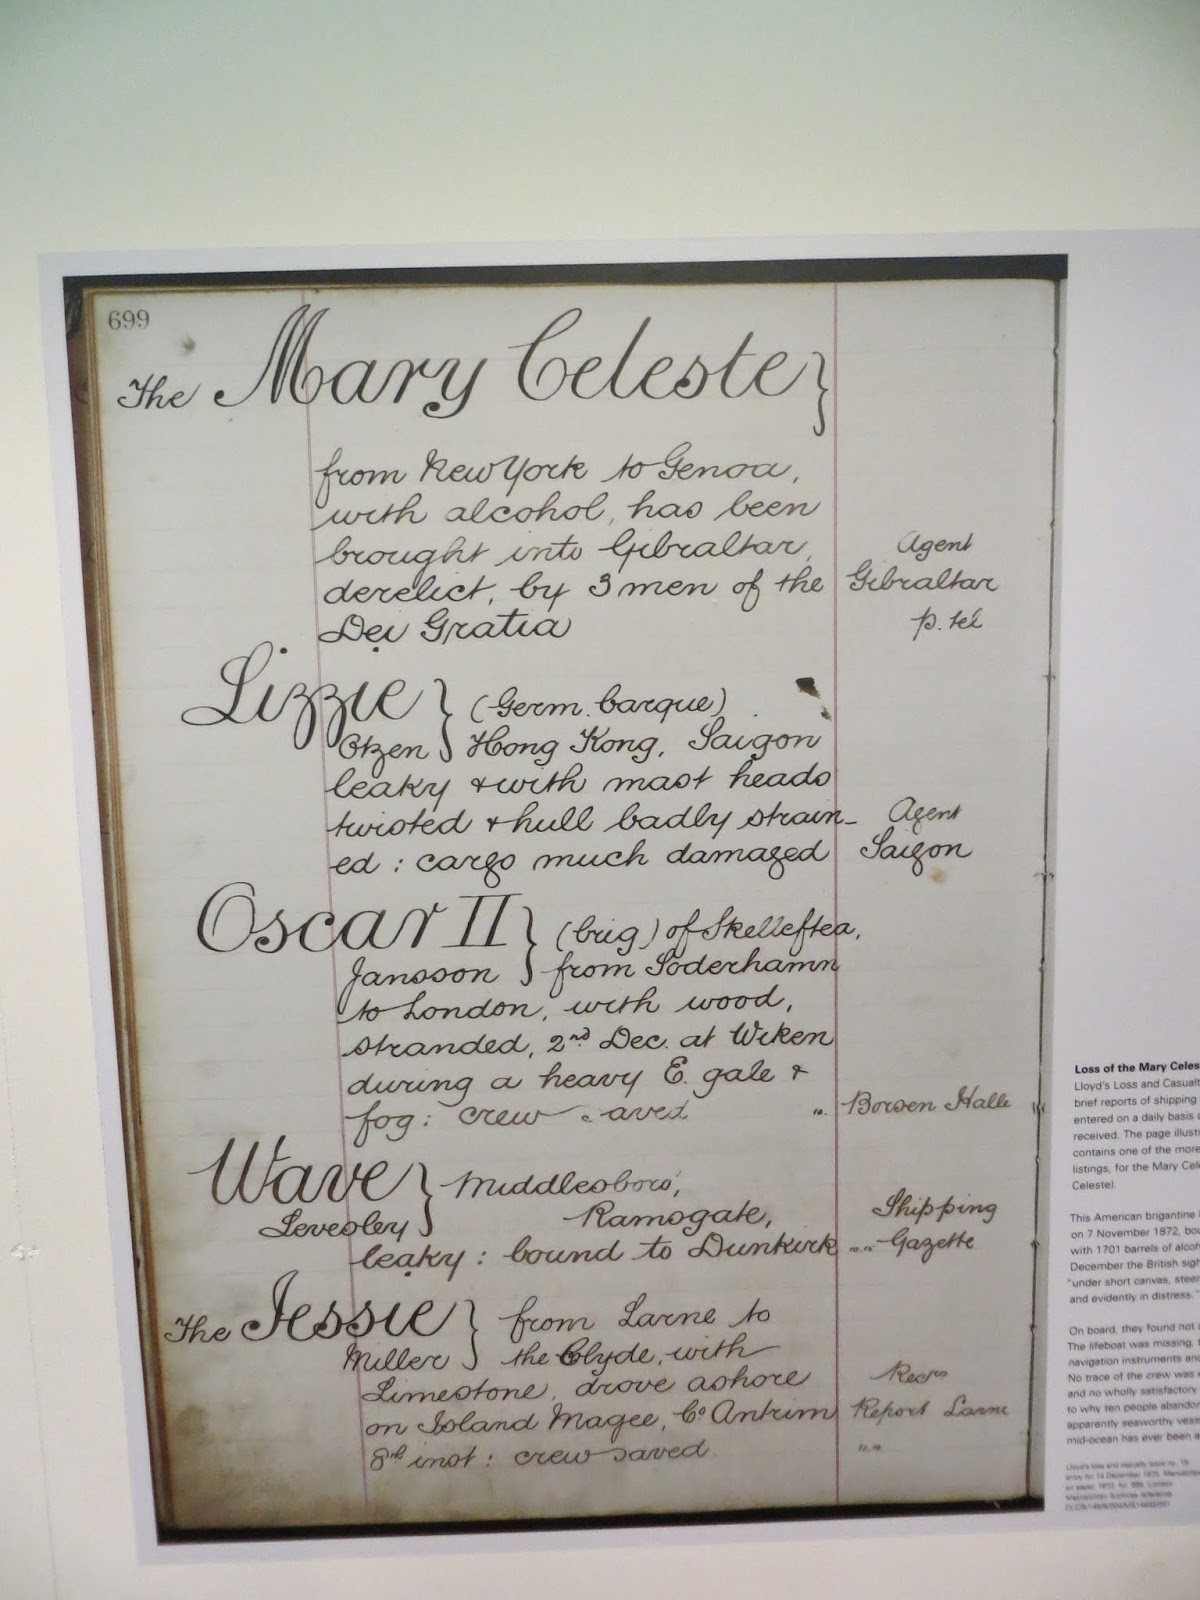 699
The Mary Celeste }
from New York to Genoa,
with alcohol, has been
brought into Gibraltar,
derelict, by 3 men of the
Dei Gratia
Agent
Gibraltar
p. tel
Lizzie } (Germ. barque)
Otzen Hong Kong, Saigon
leaky & with mast heads
twisted & hull badly strain-
ed : cargo much damaged
Agent
Saigon
Oscar II } (brig) of Skelleftea,
Jansson from Soderhamn
to London, with wood,
stranded, 2nd Dec. at Wiken
during a heavy E. gale &
fog : crew saved " Borsen Halle
Wave } Middlesboro',
Levesley Ramsgate,
leaky : bound to Dunkirk
Shipping
"" Gazette
The Jessie } from Larne to
Miller the Clyde, with
Limestone, drove ashore
on Island Magee, Co Antrim
8th inst : crew saved
Recrs
Report Larne
""
Loss of the Mary Celes
Lloyd's Loss and Casualt
brief reports of shipping
entered on a daily basis a
received. The page illust
contains one of the more
listings, for the Mary Cel
Celeste).
This American brigantine
on 7 November 1872, bou
with 1701 barrels of alcoh
December the British sigh
"under short canvas, steer
and evidently in distress."
On board, they found not
The lifeboat was missing,
navigation instruments and
No trace of the crew was
and no wholly satisfactory
to why ten people abandon
apparently seaworthy vess
mid-ocean has ever been a
Lloyd's loss and casualty book no. 19,